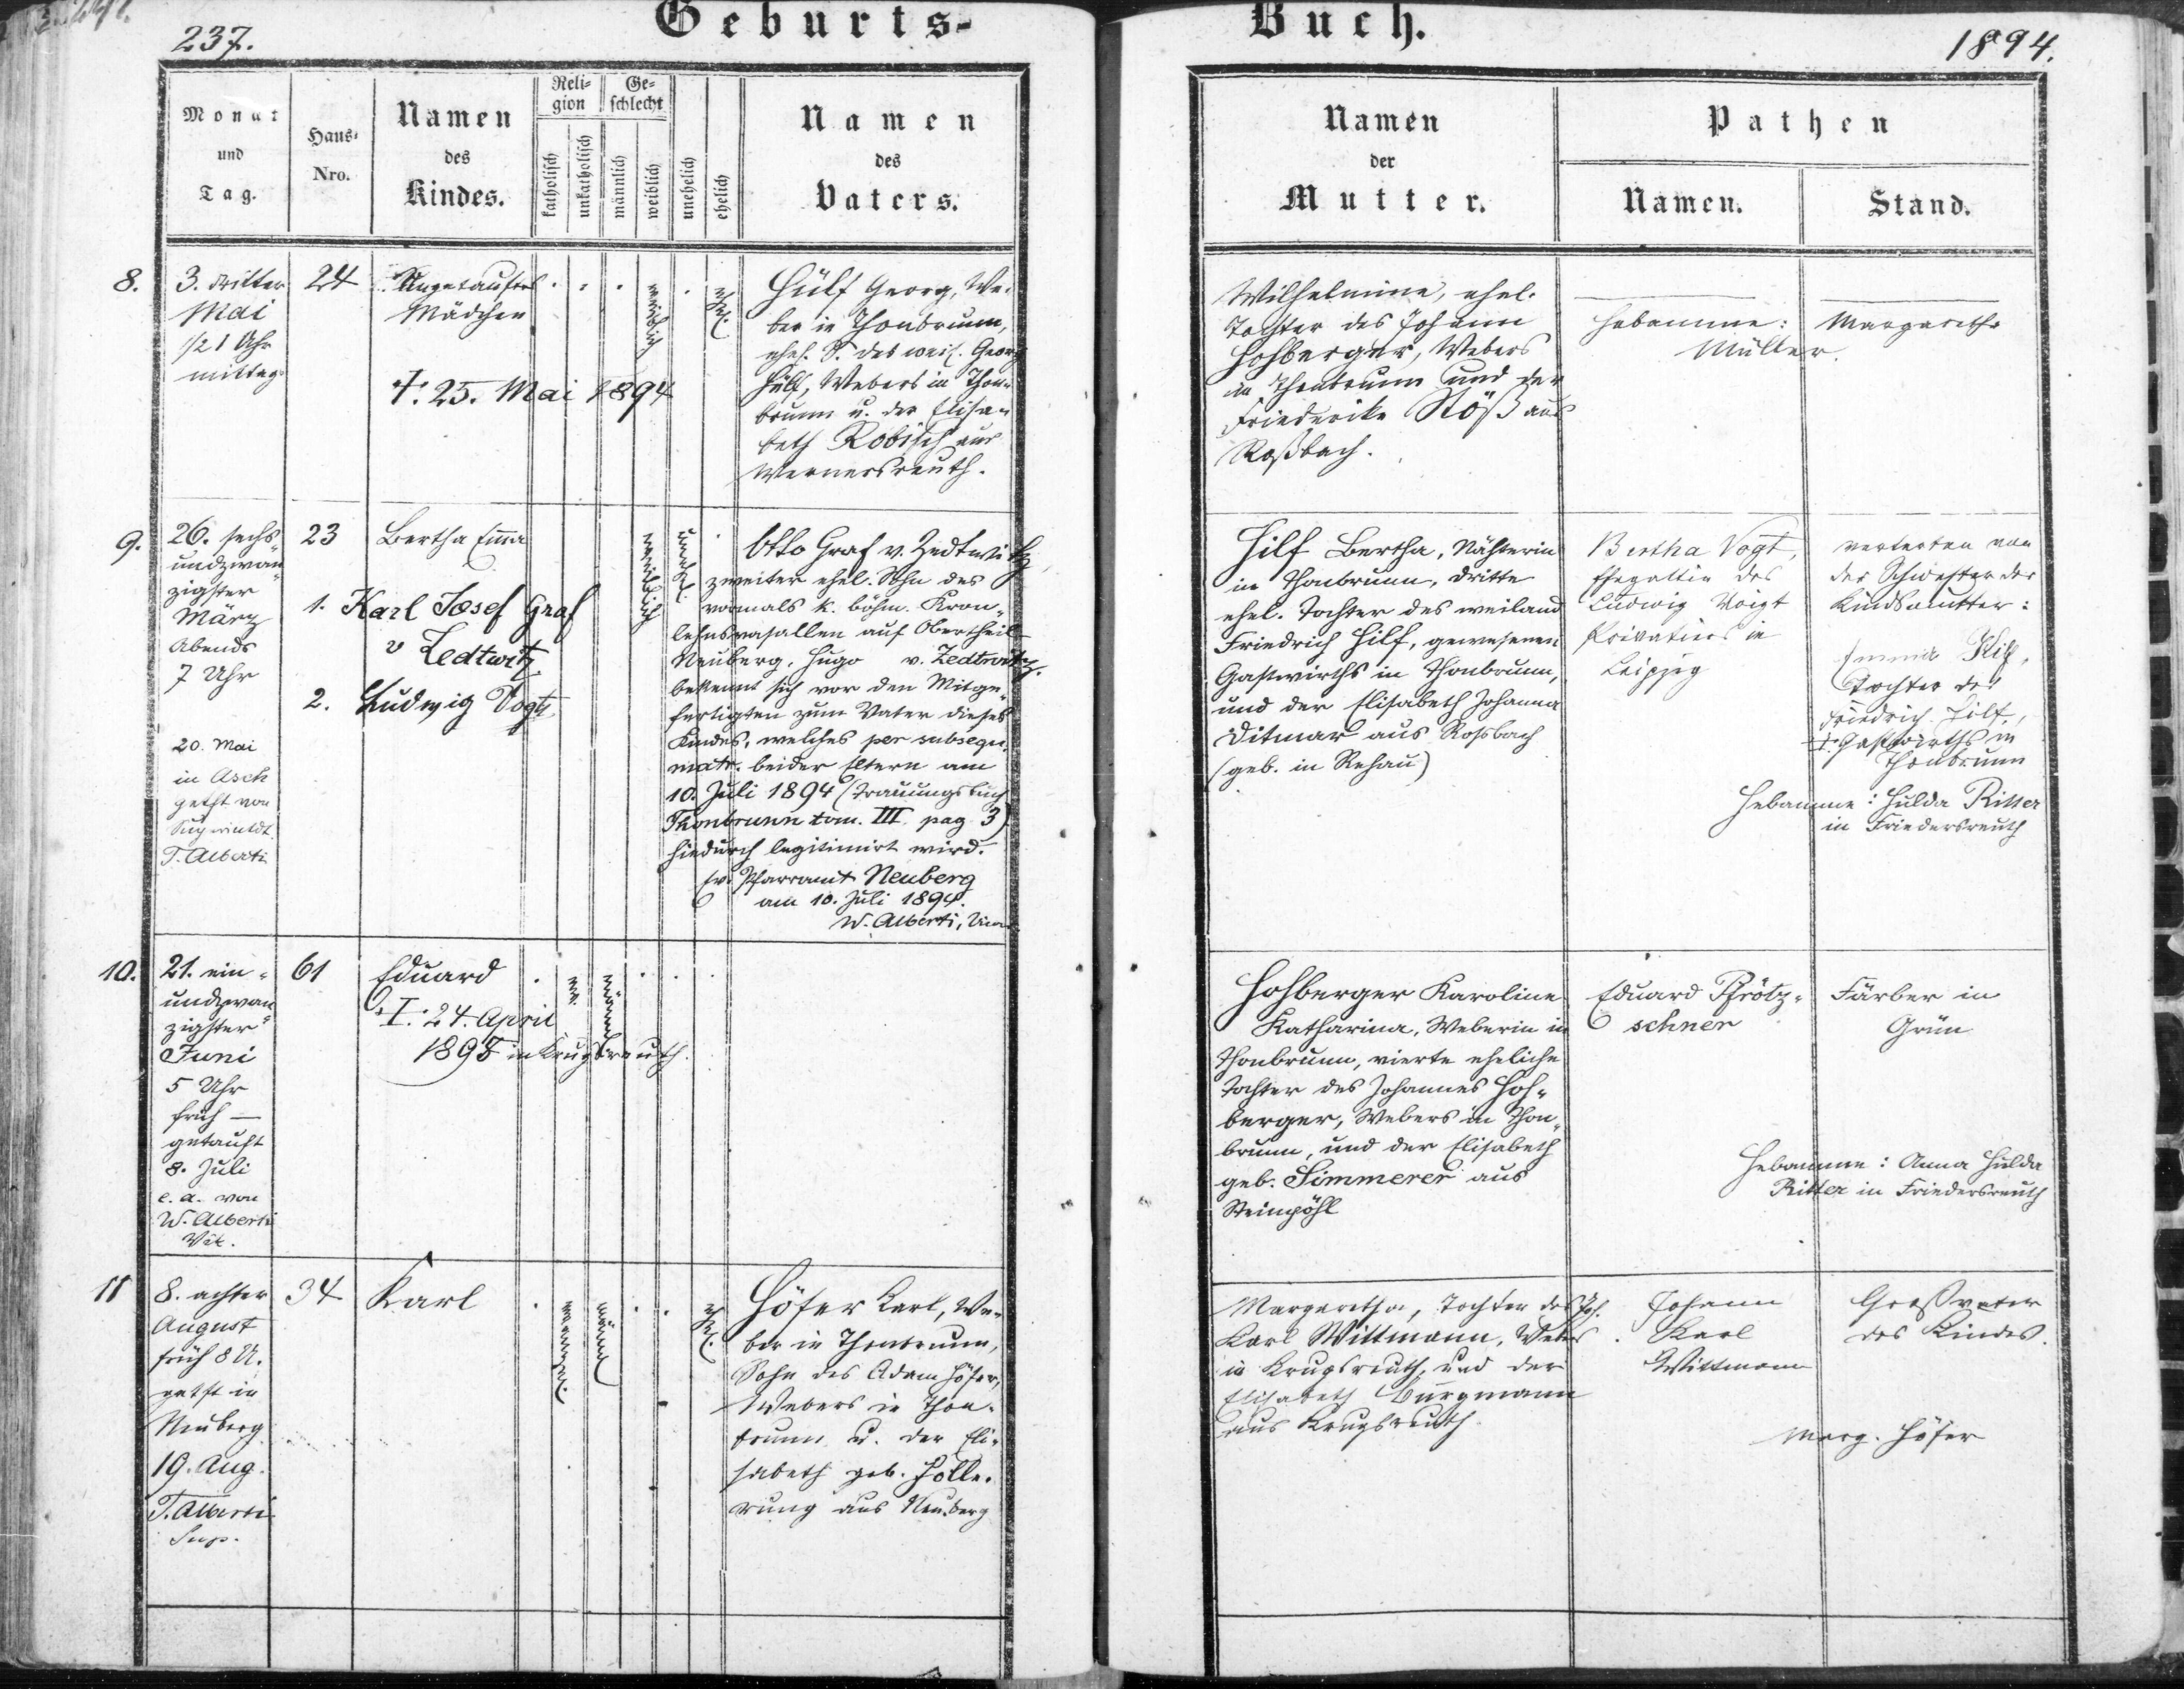 237.
Geburts-
Buch.
1894.
Monat
und
Tag.
Haus-
Nro.
Namen
des
Kindes.
Reli-
gion
katholisch
unkatholisch
Ge-
schlecht
männlich
weiblich
unehelich
ehelich
Namen
des
Vaters.
Namen
der
Mutter.
Pathen
Namen.
Stand.
8.
3. dritter
Mai
1/2 1 Uhr
mittag
24
Ungetauftes
Mädchen
†. 25. Mai 1894
weiblich
ehel.
Hülf Georg, We-
ber in Thonbrunn,
ehel. S. des weil. Georg
Hülf, Webers in Thon-
brunn u. der Elisa-
beth Robisch aus
Wernersreuth.
Wilhelmine, ehel.
Tochter des Johann
Hohberger, Webers
in Thonbrunn und der
Friederike Stöß aus
Roßbach.
Hebamme: Margareth
Müller.
9.
26. sechs-
undzwan-
zigster
März
Abends
7 Uhr
20. Mai
in Asch
getft von
T. Alberti
23
Bertha Emma
1. Karl Josef Graf
v Zedtwitz
2. Ludwig Vogt
weiblich
unehel.
Otto Graf v. Zedtwitz,
zweiter ehel. Sohn des
vormals k. böhm. Kron-
lehnsvasallen auf Obertheil-
Neuberg, Hugo v. Zedtwitz.
bekennt sich vor den Mitge-
fertigten zum Vater dieses
Kindes, welches per subsequ.
matr. beider Eltern am
10. Juli 1894 (Trauungsbuch
Thonbrunn tom. III. pag 3)
hiedurch legitimirt wird.
Ev. Pfarramt Neuberg
am 10. Juli 1894.
W. Alberti, Vicar
Hilf Bertha, Nähterin
in Thonbrunn, dritte
ehel. Tochter des weiland
Friedrich Hilf, gewesenen
Gastwirths in Thonbrunn,
und der Elisabeth Johanna
Ditmar aus Rossbach
(geb. in Rehau)
Bertha Vogt,
Ehegattin des
Ludwig Voigt
Privatiers in
Leipzig
vertreten von
der Schwester der
Kindsmutter:
Emma Hilf,
Tochter des
Friedrich Hilf,
†. Gastwirths in
Thonbrunn
Hebamme: Hulda Ritter
in Friedersreuth
10.
21. ein-
undzwan-
zigster
Juni
5 Uhr
früh —
getauft
8. Juli
e. a. von
W. Alberti
Vik.
61
Eduard
†. 24. April
1895 in Krugsreuth.
Hohberger Karoline
Katharina, Weberin in
Thonbrunn, vierte eheliche
Tochter des Johannes Hoh-
berger, Webers in Thon-
brunn, und der Elisabeth
geb. Simmerer aus
Steinpöhl
Eduard Pfrötz-
schner
Färber in
Grün
Hebamme: Anna Hulda
Ritter in Friedersreuth
11
8. achter
August
früh 8 U.
getft in
Neuberg
19. Aug.
T. Alberti
Sup.
34
Karl
ehel.
Höfer Karl, We-
ber in Thonbrunn,
Sohn des Adam Höfer,
Webers in Thon-
brunn u. der Eli-
sabeth geb. Holle-
rung aus Neuberg
Margaretha, Tochter des Joh.
Karl Wittmann, Webers
in Krugsreuth, und der
Elisabeth Burgmann
aus Krugsreuth.
Johann
Karl
Wittmann
Großvater
des Kindes.
Marg. Höfer